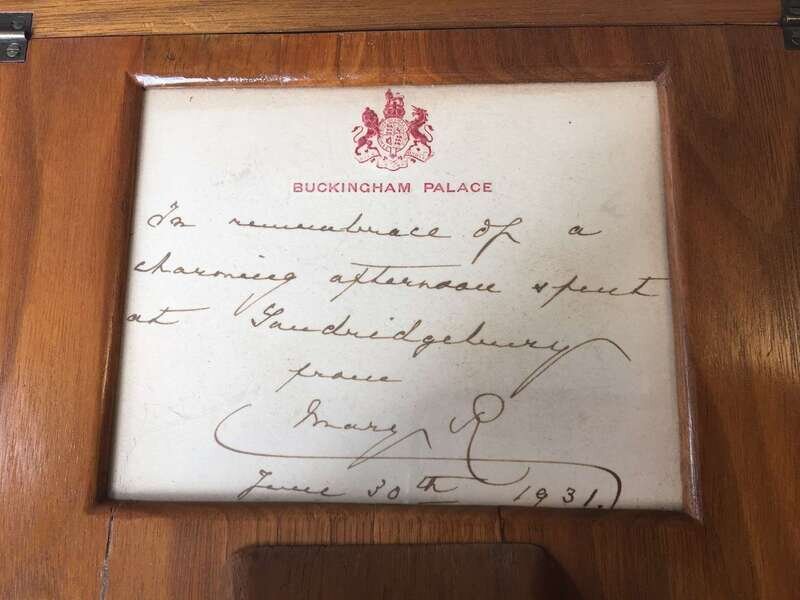 BUCKINGHAM PALACE
In remembrace of a
charming afternoon spent
at Sandridgebury
from
Mary R
June 30th 1931.